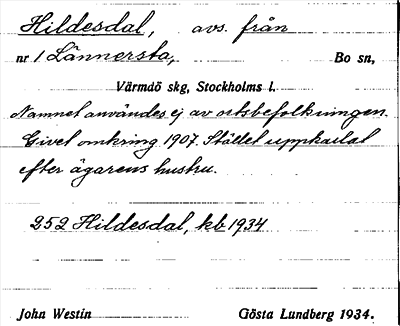 Hildesdal, avs. från
nr 1 Lännersta, Bo sn,
Värmdö skg, Stockholms l.
Namnet användes ej av ortsbefolkningen.
Givet omkring 1907. Stället uppkallat
efter ägarens hustru.
252 Hildesdal, kb 1934
John Westin Gösta Lundberg 1934.